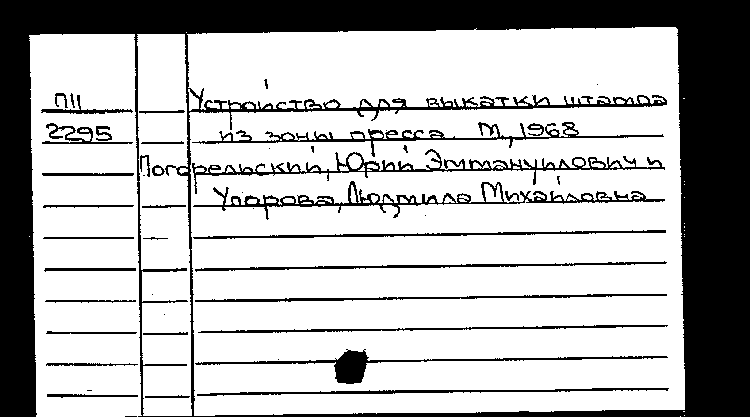 П11 Устройство для выкатки штампа
2295 из зоны пресса. М., 1968
Погорельский, Юрий Эммануилович и
Упорова, Людмила Михайловна